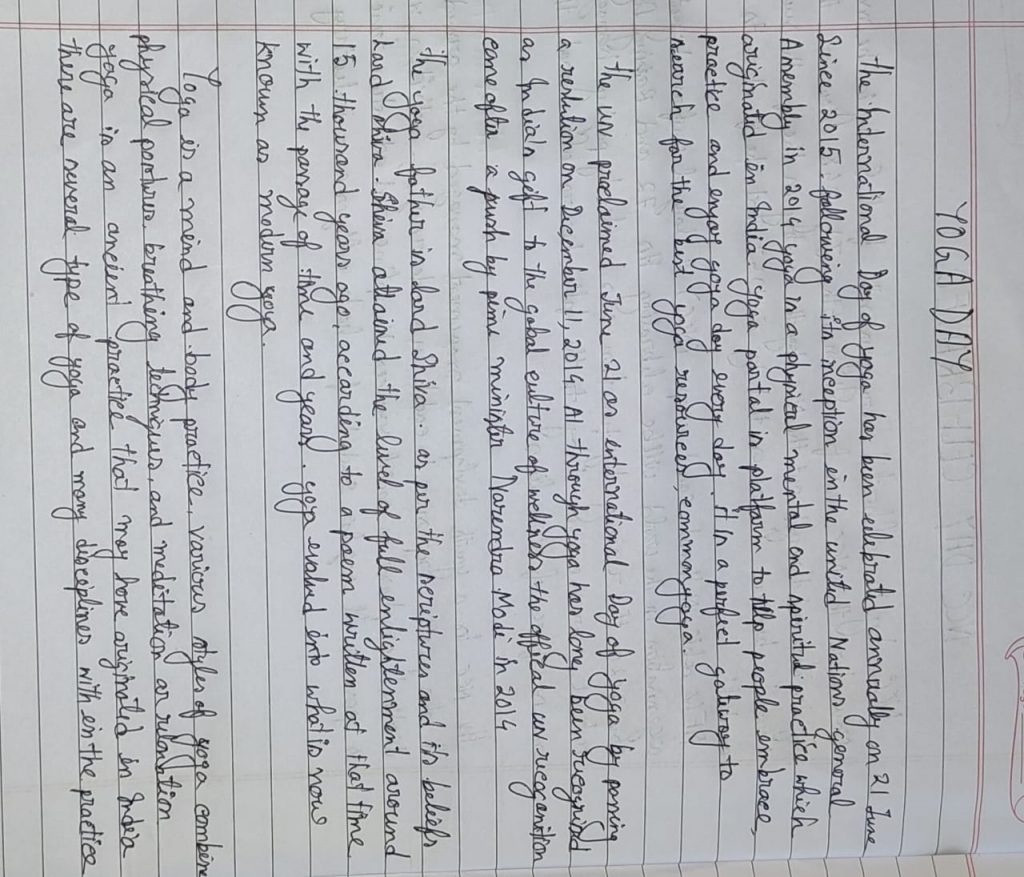 YOGA DAY
the International Day of yoga has been celebrated annually on 21 June
Since 2015, following its inception in the united Nations general
Assembly in 2014 yoga is a physical mental and spiritul practice which
originated in India. yoga portal is platform to help people embrace,
practice and enjoy yoga day every day. it is a perfect gateway to
search for the best yoga resources, common yoga.
the un proclaimed June 21 as international Day of yoga by passing
a reslution on December 11, 2014. Al through yoga has long been recognised
as India's gift to the gobal culture of wellness the offical un recognition
came after a push by prime minister Narendra Modi in 2014
the yoga father is Lord Shiva. as per the scriptures and its beliefs
Lord Shiva. Shiva attained the level of full enlightenment around
15 thousand years ago, according to a poem written at that time
with the passage of time and years. yoga evolved into what is now
known as modern yoga.
Yoga is a mind and body practice. various styles of yoga combine
physical postures, breathing techniques, and meditation or relaxation
yoga is an ancient practice that may have originated in India
there are several type of yoga and many disciplines with in the practice